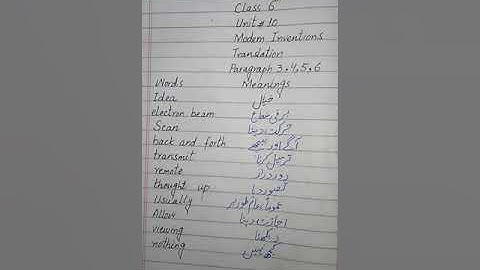 Class 6
Unit # 10
Modern Inventions
Translation
Paragraph 3,4,5,6
Words Meanings
Idea خیال
electron beam برقی شعاع
Scan حرکت دینا
back and forth آگے اور پیچھے
transmit ترسیل کرنا
remote دور دراز
thought up تصور دیا
Usually عموماً، عام طور پر
Allow اجازت دینا
viewing دیکھنا
nothing کچھ نہیں